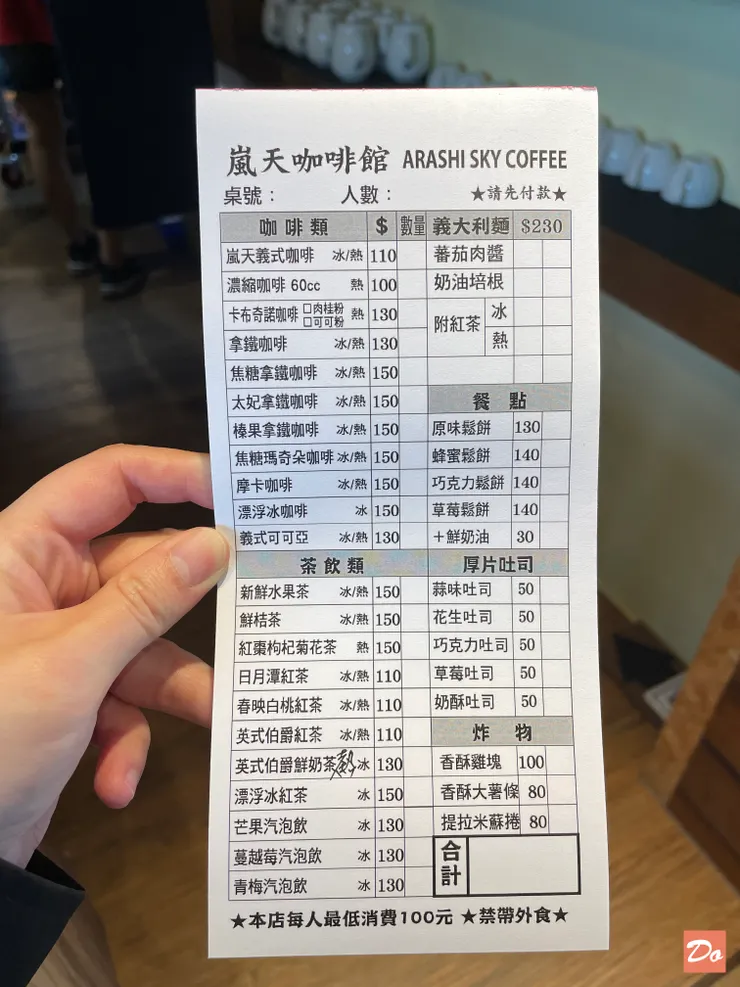 嵐天咖啡館 ARASHI SKY COFFEE
桌號： 人數： ★請先付款★
咖啡類 $ 數量
嵐天義式咖啡 冰/熱 110
濃縮咖啡 60cc 熱 100
卡布奇諾咖啡 □肉桂粉 □可可粉 熱 130
拿鐵咖啡 冰/熱 130
焦糖拿鐵咖啡 冰/熱 150
太妃拿鐵咖啡 冰/熱 150
榛果拿鐵咖啡 冰/熱 150
焦糖瑪奇朵咖啡 冰/熱 150
摩卡咖啡 冰/熱 150
漂浮冰咖啡 冰 150
義式可可亞 冰/熱 130
茶飲類
新鮮水果茶 冰/熱 150
鮮桔茶 冰/熱 150
紅棗枸杞菊花茶 熱 150
日月潭紅茶 冰/熱 110
春映白桃紅茶 冰/熱 110
英式伯爵紅茶 冰/熱 110
英式伯爵鮮奶茶 熱 冰 130
漂浮冰紅茶 冰 150
芒果汽泡飲 冰 130
蔓越莓汽泡飲 冰 130
青梅汽泡飲 冰 130
義大利麵 $230
蕃茄肉醬
奶油培根
附紅茶 冰
熱
餐點
原味鬆餅 130
蜂蜜鬆餅 140
巧克力鬆餅 140
草莓鬆餅 140
＋鮮奶油 30
厚片吐司
蒜味吐司 50
花生吐司 50
巧克力吐司 50
草莓吐司 50
奶酥吐司 50
炸物
香酥雞塊 100
香酥大薯條 80
提拉米蘇捲 80
合計
★本店每人最低消費100元 ★禁帶外食★
Do